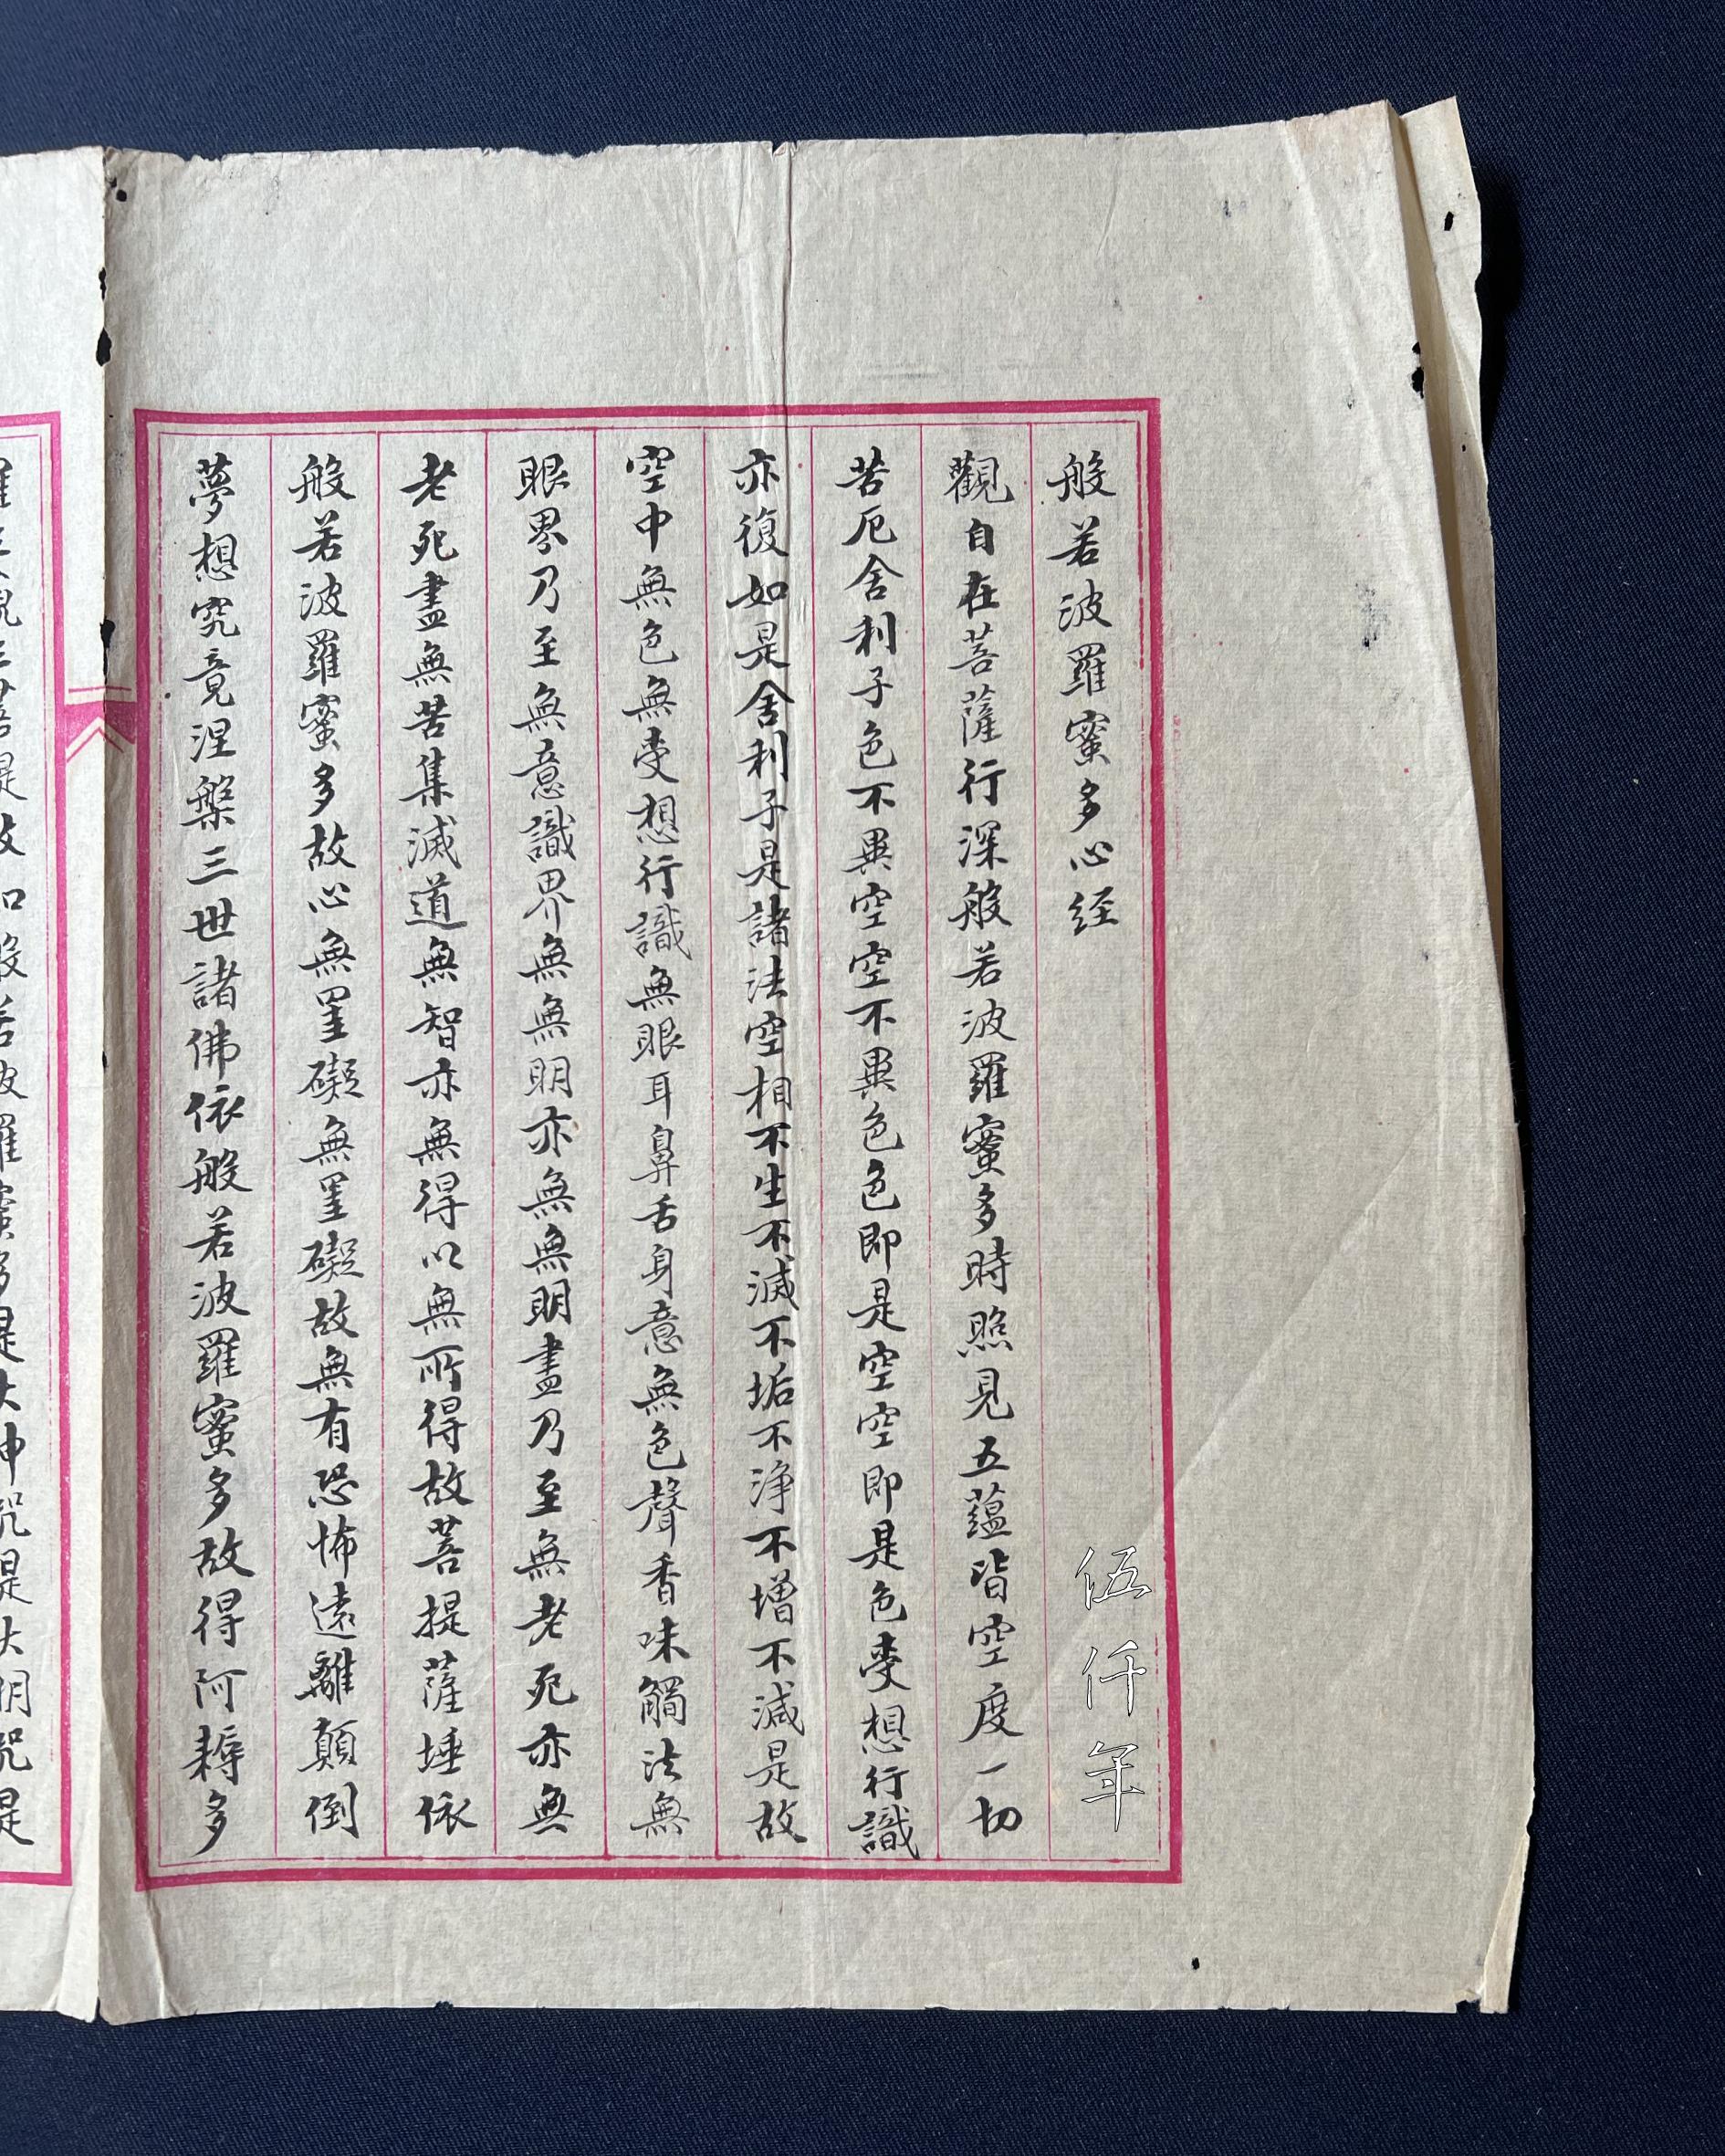 般若波羅蜜多心経
伍仟年
觀自在菩薩行深般若波羅蜜多時照見五蘊皆空度一切
苦厄舍利子色不異空空不異色色即是空空即是色受想行識
亦復如是舍利子是諸法空相不生不滅不垢不浄不增不減是故
空中無色無受想行識無眼耳鼻舌身意無色聲香味觸法無
眼界乃至無意識界無無明亦無無明盡乃至無老死亦無
老死盡無苦集滅道無智亦無得以無所得故菩提薩埵依
般若波羅蜜多故心無罣礙無罣礙故無有恐怖遠離顛倒
夢想究竟涅槃三世諸佛依般若波羅蜜多故得阿耨多
羅三藐三菩提故知般若波羅蜜多是大神咒是大明咒是